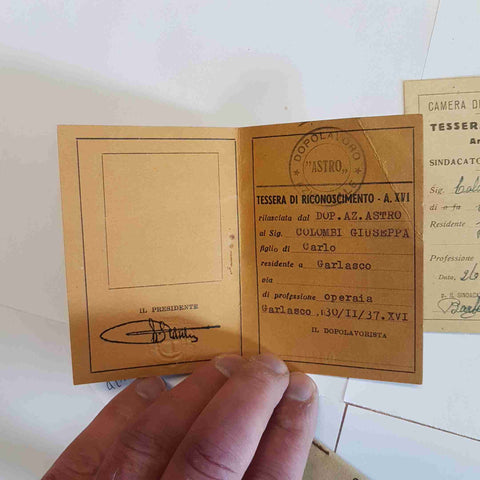 IL PRESIDENTE
DOPOLAVORO
"ASTRO"
TESSERA DI RICONOSCIMENTO - A. XVI
rilasciata dal DOP.AZ.ASTRO
al Sig. COLOMBI GIUSEPPA
figlio di Carlo
residente a Garlasco
via
di professione operaia
Garlasco, 30/II/37.XVI
IL DOPOLAVORISTA
CAMERA DE
TESSERA
SINDACATO
Sig.
di
Residente
Professione
Data, 26